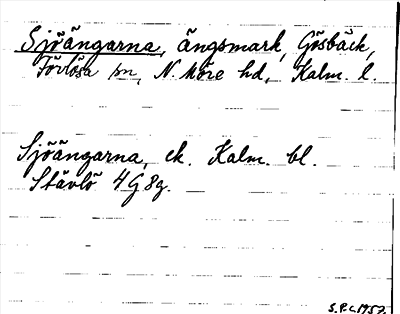 Sjöängarna, ängsmark, Gösbäck,
Förlösa sn, N. Möre hd, Kalm. l.
Sjöängarna, ek. Kalm. bl.
Stävlö 4G8g.
S.P.C. 1957.